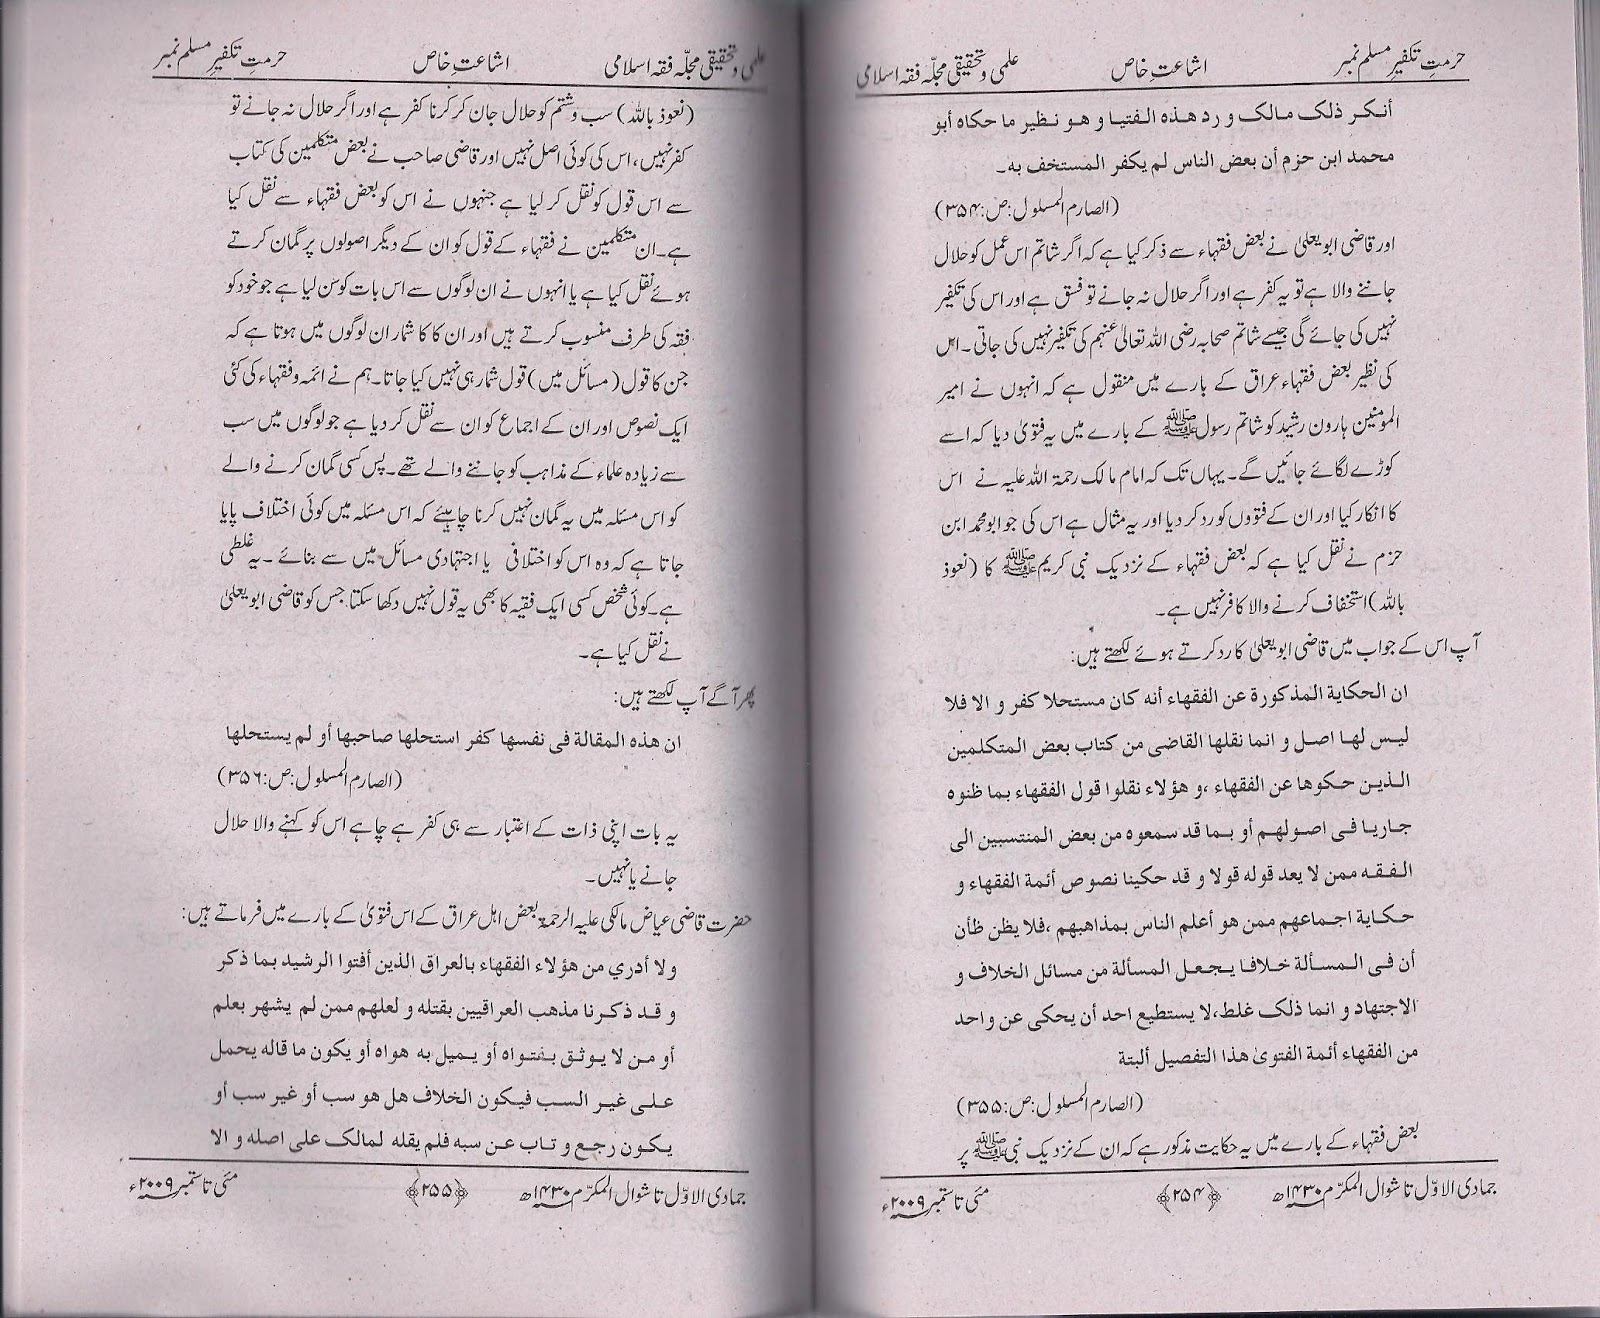 حرمتِ تکفیرِ مسلم نمبر اشاعتِ خاص علمی و تحقیقی مجلّہ فقہ اسلامی
أنكر ذلك مالك و رد هذه الفتيا و هو نظير ما حكاه أبو
محمد ابن حزم أن بعض الناس لم يكفر المستخف به۔
(الصارم المسلول:ص:۳۵۴)
اور قاضی ابویعلیٰ نے بعض فقہاء سے ذکر کیا ہے کہ اگر شاتم اس عمل کو حلال
جاننے والا ہے تو یہ کفر ہے اور اگر حلال نہ جانے تو فسق ہے اور اس کی تکفیر
نہیں کی جائے گی جیسے شاتم صحابہ رضی اللہ تعالیٰ عنہم کی تکفیر نہیں کی جاتی۔ اس
کی نظیر بعض فقہاء عراق کے بارے میں منقول ہے کہ انہوں نے امیر
المومنین ہارون رشید کو شاتم رسول ﷺ کے بارے میں یہ فتویٰ دیا کہ اسے
کوڑے لگائے جائیں گے۔ یہاں تک کہ امام مالک رحمۃ اللہ علیہ نے اس
کا انکار کیا اور ان کے فتووں کو رد کر دیا اور یہ مثال ہے اس کی جو ابو محمد ابن
حزم نے نقل کیا ہے کہ بعض فقہاء کے نزدیک نبی کریم ﷺ کا (نعوذ
باللہ) استخفاف کرنے والا کافر نہیں ہے۔
آپ اس کے جواب میں قاضی ابویعلیٰ کا رد کرتے ہوئے لکھتے ہیں:
ان الحكاية المذكورة عن الفقهاء أنه كان مستحلا كفر و الا فلا
ليس لها اصل و انما نقلها القاضى من كتاب بعض المتكلمين
الذين حكوها عن الفقهاء ،و هؤلاء نقلوا قول الفقهاء بما ظنوه
جاريا فى اصولهم أو بما قد سمعوه من بعض المنتسبين الى
الفقه ممن لا يعد قوله قولا و قد حكينا نصوص أئمة الفقهاء و
حكاية اجماعهم ممن هو أعلم الناس بمذاهبهم ،فلا يظن ظأن
أن فى المسألة خلافا يجعل المسألة من مسائل الخلاف و
الاجتهاد و انما ذلك غلط،لا يستطيع احد أن يحكى عن واحد
من الفقهاء أئمة الفتوىٰ هذا التفصيل ألبتة
(الصارم المسلول:ص:۳۵۵)
بعض فقہاء کے بارے میں یہ حکایت مذکور ہے کہ ان کے نزدیک نبی ﷺ پر
جمادی الاوّل تا شوال المکرّم ۱۴۳۰ھ ﴿۲۵۴﴾ مئی تا ستمبر ۲۰۰۹ء
حرمتِ تکفیرِ مسلم نمبر اشاعتِ خاص علمی و تحقیقی مجلّہ فقہ اسلامی
(نعوذ باللہ) سب و شتم کو حلال جان کر کرنا کفر ہے اور اگر حلال نہ جانے تو
کفر نہیں، اس کی کوئی اصل نہیں اور قاضی صاحب نے بعض متکلمین کی کتاب
سے اس قول کو نقل کر لیا ہے جنہوں نے اس کو بعض فقہاء سے نقل کیا
ہے۔ ان متکلمین نے فقہاء کے قول کو ان کے دیگر اصولوں پر گمان کرتے
ہوئے نقل کیا ہے یا انہوں نے ان لوگوں سے اس بات کو سن لیا ہے جو خود کو
فقہ کی طرف منسوب کرتے ہیں اور ان کا کا شمار ان لوگوں میں ہوتا ہے کہ
جن کا قول (مسائل میں) قول شمار ہی نہیں کیا جاتا۔ ہم نے ائمہ و فقہاء کی کئی
ایک نصوص اور ان کے اجماع کو ان سے نقل کر دیا ہے جو لوگوں میں سب
سے زیادہ علماء کے مذاہب کو جاننے والے تھے۔ پس کسی گمان کرنے والے
کو اس مسئلہ میں یہ گمان نہیں کرنا چاہیئے کہ اس مسئلہ میں کوئی اختلاف پایا
جاتا ہے کہ وہ اس کو اختلافی یا اجتہادی مسائل میں سے بنائے ۔ یہ غلطی
ہے۔ کوئی شخص کسی ایک فقیہ کا بھی یہ قول نہیں دکھا سکتا جس کو قاضی ابو یعلیٰ
نے نقل کیا ہے۔
پھر آگے آپ لکھتے ہیں:
ان هذه المقالة فى نفسها كفر استحلها صاحبها أو لم يستحلها
(الصارم المسلول:ص:۳۵۶)
یہ بات اپنی ذات کے اعتبار سے ہی کفر ہے چاہے اس کو کہنے والا حلال
جانے یا نہیں۔
حضرت قاضی عیاض مالکی علیہ الرحمۃ بعض اہل عراق کے اس فتویٰ کے بارے میں فرماتے ہیں:
و لا أدري من هؤلاء الفقهاء بالعراق الذين أفتوا الرشيد بما ذكر
و قد ذكرنا مذهب العراقيين بقتله و لعلهم ممن لم يشهر بعلم
أو من لا يوثق بفتواه أو يميل به هواه أو يكون ما قاله يحمل
على غير السب فيكون الخلاف هل هو سب أو غير سب أو
يكون رجع و تاب عن سبه فلم يقله لمالك على اصله و الا
جمادی الاوّل تا شوال المکرّم ۱۴۳۰ھ ﴿۲۵۵﴾ مئی تا ستمبر ۲۰۰۹ء